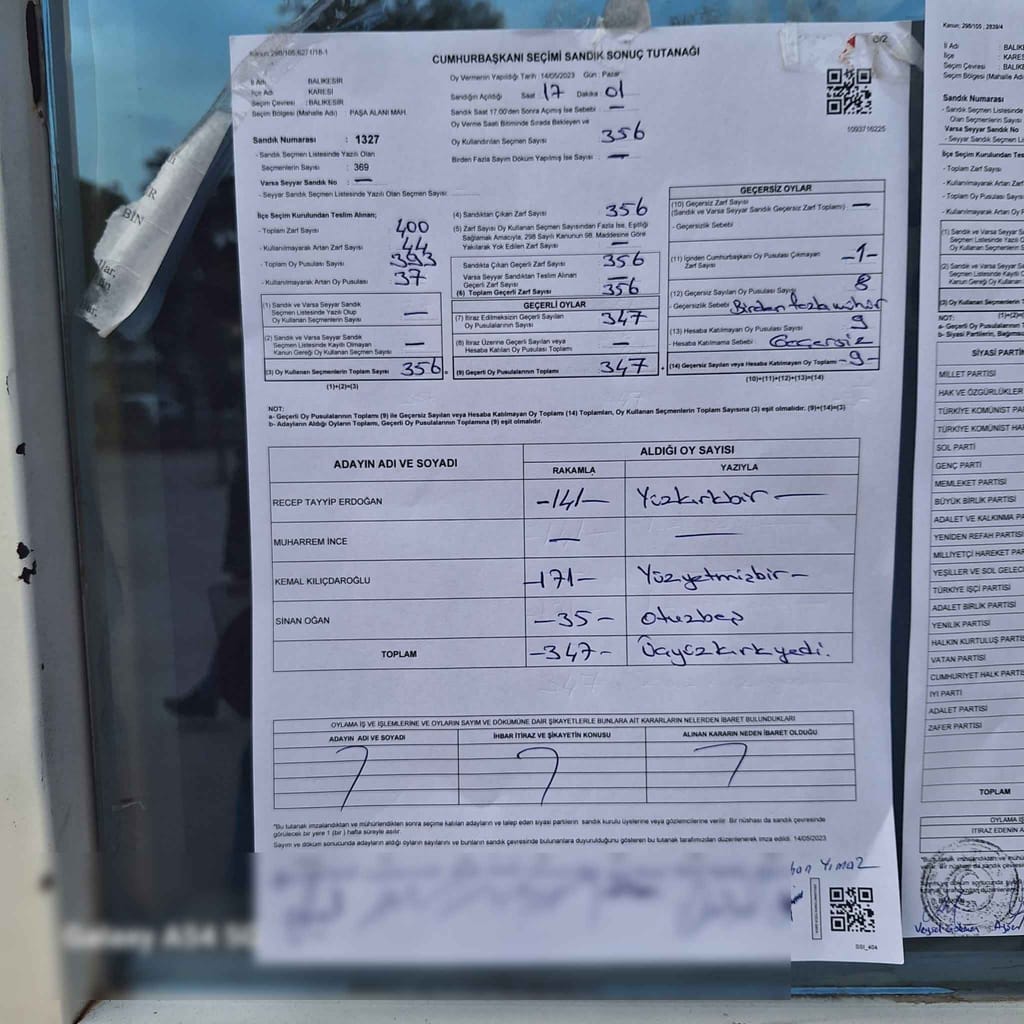 Kanun: 298/105,6271/18-1
6/2
CUMHURBAŞKANI SEÇİMİ SANDIK SONUÇ TUTANAĞI
İl Adı : BALIKESİR
İlçe Adı : KARESİ
Seçim Çevresi : BALIKESİR
Seçim Bölgesi (Mahalle Adı) : PAŞA ALANI MAH.
Oy Vermenin Yapıldığı Tarih : 14/05/2023 Gün : Pazar
Sandığın Açıldığı Saat 17 Dakika 01
Sandık Saat 17.00'den Sonra Açılmış İse Sebebi : —
Oy Verme Saati Bitiminde Sırada Bekleyen ve
Oy Kullandırılan Seçmen Sayısı : 356
Birden Fazla Sayım Döküm Yapılmış İse Sayısı : —
1093716225
Sandık Numarası : 1327
- Sandık Seçmen Listesinde Yazılı Olan
Seçmenlerin Sayısı : 369
Varsa Seyyar Sandık No : —
- Seyyar Sandık Seçmen Listesinde Yazılı Olan Seçmen Sayısı:
İlçe Seçim Kurulundan Teslim Alınan;
- Toplam Zarf Sayısı : 400
- Kullanılmayarak Artan Zarf Sayısı : 44
- Toplam Oy Pusulası Sayısı : 393
- Kullanılmayarak Artan Oy Pusulası Sayısı : 37
(1) Sandık ve Varsa Seyyar Sandık
Seçmen Listesinde Yazılı Olup
Oy Kullanan Seçmenlerin Sayısı —
(2) Sandık ve Varsa Seyyar Sandık
Seçmen Listesinde Kayıtlı Olmayan
Kanun Gereği Oy Kullanan Seçmen Sayısı —
(3) Oy Kullanan Seçmenlerin Toplam Sayısı 356
(1)+(2)=(3)
(4) Sandıktan Çıkan Zarf Sayısı : 356
(5) Zarf Sayısı Oy Kullanan Seçmen Sayısından Fazla İse, Eşitliği
Sağlamak Amacıyla, 298 Sayılı Kanunun 98. Maddesine Göre
Yakılarak Yok Edilen Zarf Sayısı : —
Sandıkta Çıkan Geçerli Zarf Sayısı : 356
Varsa Seyyar Sandıktan Teslim Alınan
Geçerli Zarf Sayısı : —
(6) Toplam Geçerli Zarf Sayısı : 356
GEÇERLİ OYLAR
(7) İtiraz Edilmeksizin Geçerli Sayılan
Oy Pusulalarının Sayısı : 347
(8) İtiraz Üzerine Geçerli Sayılan veya
Hesaba Katılan Oy Pusulası Toplamı : —
(9) Geçerli Oy Pusulalarının Toplamı : 347
GEÇERSİZ OYLAR
(10) Geçersiz Zarf Sayısı
(Sandık ve Varsa Seyyar Sandık Geçersiz Zarf Toplamı) —
- Geçersizlik Sebebi
(11) İçinden Cumhurbaşkanı Oy Pusulası Çıkmayan
Zarf Sayısı -1-
(12) Geçersiz Sayılan Oy Pusulası Sayısı : 8
- Geçersizlik Sebebi : Birden fazla mühür
(13) Hesaba Katılmayan Oy Pusulası Sayısı : 9
- Hesaba Katılmama Sebebi : Geçersiz
(14) Geçersiz Sayılan veya Hesaba Katılmayan Oy Toplamı -9-
(10)+(11)+(12)+(13)=(14)
NOT:
a- Geçerli Oy Pusulalarının Toplamı (9) ile Geçersiz Sayılan veya Hesaba Katılmayan Oy Toplamı (14) Toplamları, Oy Kullanan Seçmenlerin Toplam Sayısına (3) eşit olmalıdır. (9)+(14)=(3)
b- Adayların Aldığı Oyların Toplamı, Geçerli Oy Pusulalarının Toplamına (9) eşit olmalıdır.
ADAYIN ADI VE SOYADI ALDIĞI OY SAYISI
RAKAMLA YAZIYLA
RECEP TAYYİP ERDOĞAN -141- Yüzkırkbir —
MUHARREM İNCE — —
KEMAL KILIÇDAROĞLU -171- Yüzyetmişbir -
SİNAN OĞAN -35- Otuzbeş
TOPLAM -347- Üçyüzkırkyedi.
OYLAMA İŞ VE İŞLEMLERİNE VE OYLARIN SAYIM VE DÖKÜMÜNE DAİR ŞİKAYETLERLE BUNLARA AİT KARARLARIN NELERDEN İBARET BULUNDUKLARI
ADAYIN ADI VE SOYADI İHBAR İTİRAZ VE ŞİKAYETİN KONUSU ALINAN KARARIN NEDEN İBARET OLDUĞU
"Bu tutanak imzalandıktan ve mühürlendikten sonra seçime katılan adayların ve talep eden siyasi partilerin sandık kurulu üyelerine veya gözlemcilerine verilir. Bir nüshası da sandık çevresinde
görülecek bir yere 1 (bir) hafta süreyle asılır.
Sayım ve döküm sonucunda adayların aldığı oyların sayılarını ve bunların sandık çevresinde bulunanlara duyurulduğunu gösteren bu tutanak tarafımızdan düzenlenerek imza edildi. 14/05/2023
Yılmaz
SSI_404
Galaxy A34 5G
Kanun: 298/105 , 2839/4
İl Adı : BALIK
İlçe : KARES
Seçim Çevresi : BALIK
Seçim Bölgesi (Mahalle Ad
Sandık Numarası
- Sandık Seçmen Listesinde
Olan Seçmenlerin Sayısı
Varsa Seyyar Sandık No
- Seyyar Sandık Seçmen
İlçe Seçim Kurulundan Tes
- Toplam Zarf Sayısı
- Kullanılmayarak Artan Zarf
- Toplam Oy Pusulası Sayısı
- Kullanılmayarak Artan Oy
(1) Sandık ve Varsa Seyyar
Seçmen Listesinde Yazılı
Oy Kullanan Seçmenlerin
(2) Sandık ve Varsa Seyyar
Seçmen Listesinde Kayıt
Kanun Gereği Oy Kullana
(3) Oy Kullanan Seçmenlerin
(1)+(2
NOT:
a- Geçerli Oy Pusulalarının
b- Siyasi Partilerin, Bağımsız
SİYASİ PARTİ
MİLLET PARTİSİ
HAK VE ÖZGÜRLÜKLER
TÜRKİYE KOMÜNİST PA
TÜRKİYE KOMÜNİST HA
SOL PARTİ
GENÇ PARTİ
MEMLEKET PARTİSİ
BÜYÜK BİRLİK PARTİSİ
ADALET VE KALKINMA P
YENİDEN REFAH PARTİS
MİLLİYETÇİ HAREKET PAR
YEŞİLLER VE SOL GELEC
TÜRKİYE İŞÇİ PARTİSİ
ADALET BİRLİK PARTİSİ
YENİLİK PARTİSİ
HALKIN KURTULUŞ PARTİS
VATAN PARTİSİ
CUMHURİYET HALK PARTİS
İYİ PARTİ
ADALET PARTİSİ
ZAFER PARTİSİ
TOPLAM
OYLAMA İŞ
İTİRAZ EDENİN A